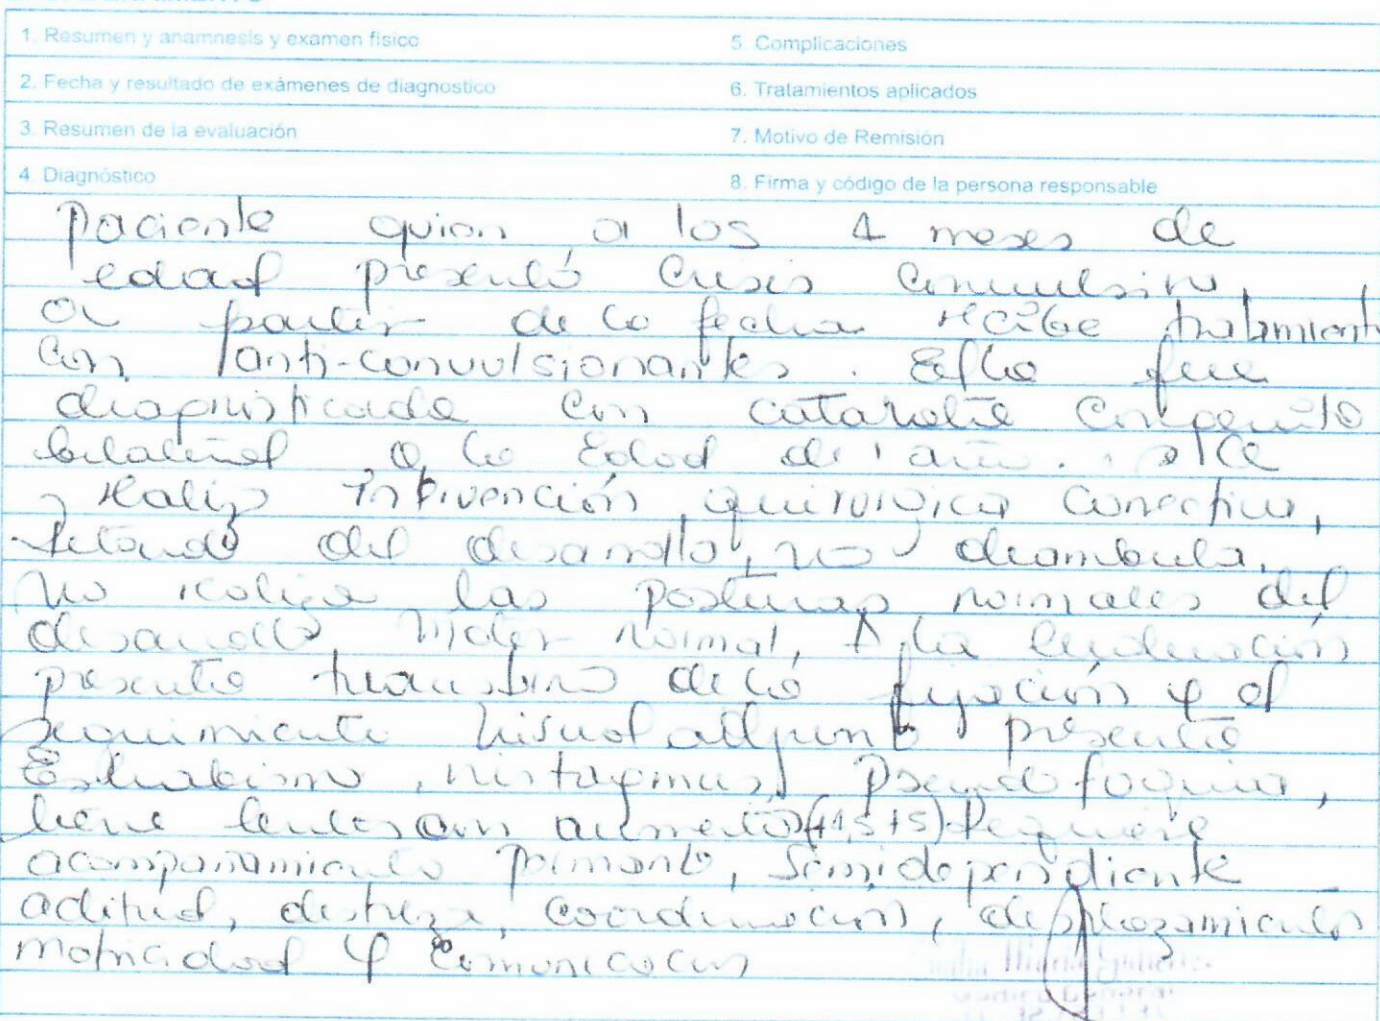 1. Resumen y anamnesis y examen físico
5. Complicaciones
2. Fecha y resultado de exámenes de diagnostico
6. Tratamientos aplicados
3. Resumen de la evaluación
7. Motivo de Remisión
4. Diagnóstico
8. Firma y código de la persona responsable
Paciente quien a los 4 meses de
edad presentó Crisis Convulsiva,
a partir de la fecha recibe tratamient
Con anti-convulsionantes. Ella fue
diagnosticada con catarata Congenita
bilateral, a la Edad de 1 año. se le
realizo intervención quirurgica correctiva,
retardo del desarrollo, no deambula,
no realiza las posturas normales del
desarrollo motor normal, A la Evaluación
presenta trastorno de la fijación y el
seguimiento visual presenta
Estrabismo, nistagmus, Pseudofaquia,
tiene lentes con aumento Requiere
acompañamiento, Semidependiente
actitud, destreza, coordinación, desplazamiento
motricidad y Comunicacion